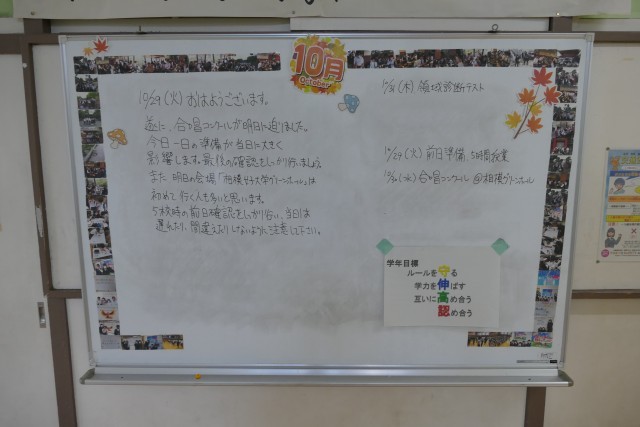 10月
October
10/29(火)おはようございます。
遂に、合唱コンクールが明日に迫りました。
今日一日の準備が当日に大きく
影響します。最後の確認をしっかり行いましょう。
また、明日の会場「相模女子大学グリーンホール」は
初めて行く人も多いと思います。
5校時の前日確認をしっかり行い、当日は
遅れたり、間違えたりしないように注意して下さい。
(木)領域診断テスト
10/29(火)前日準備、5時間授業
10/30(水)合唱コンクール@相模グリーンホール
学年目標
ルールを守る
学力を伸ばす
互いに高め合う
認め合う